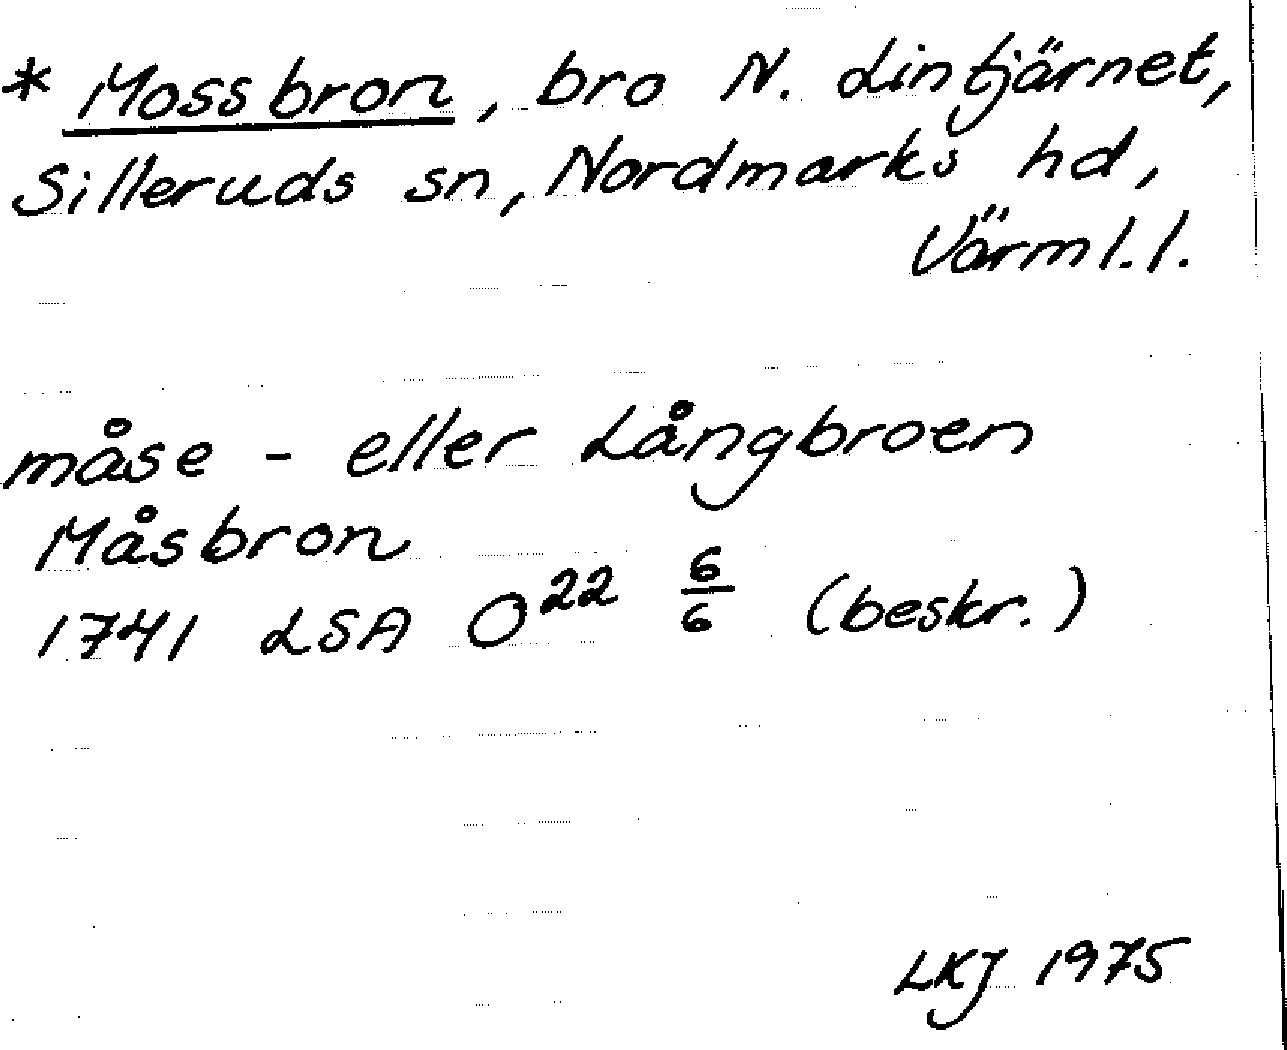 * Mossbron, bro N. Lintjärnet,
Silleruds sn, Nordmarks hd,
Värml. l.
måse - eller Långbroen
Måsbron
1741 LSA O²² 6/6 (beskr.)
LKJ 1975